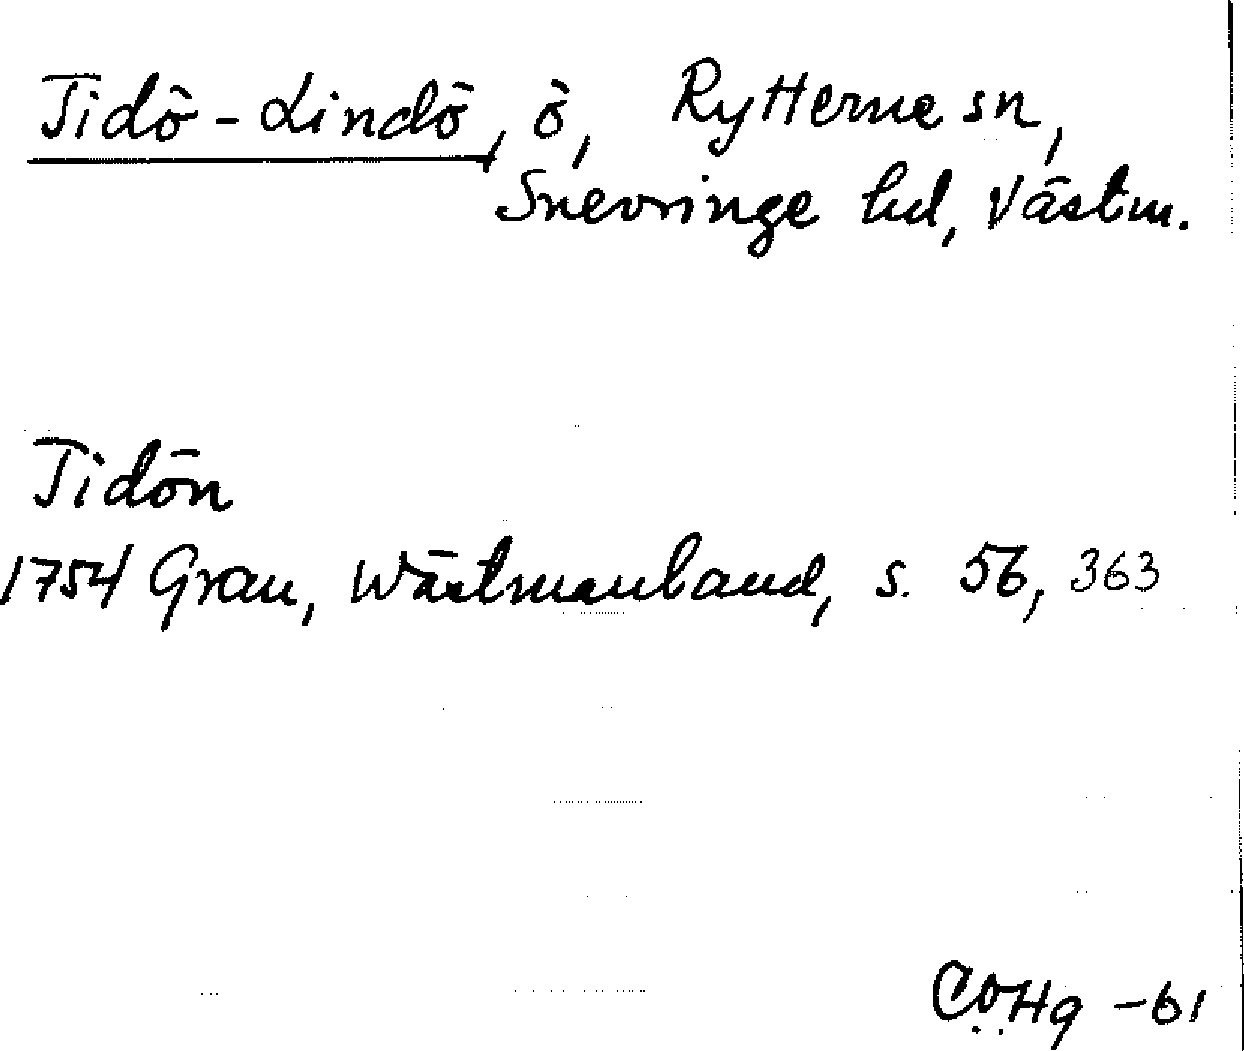 Tidö-Lindö, ö, Rytterne sn,
Snevringe hd, Västm.
Tidön
1754 Grau, Wästmanland, s. 56, 363
CÖHg -61